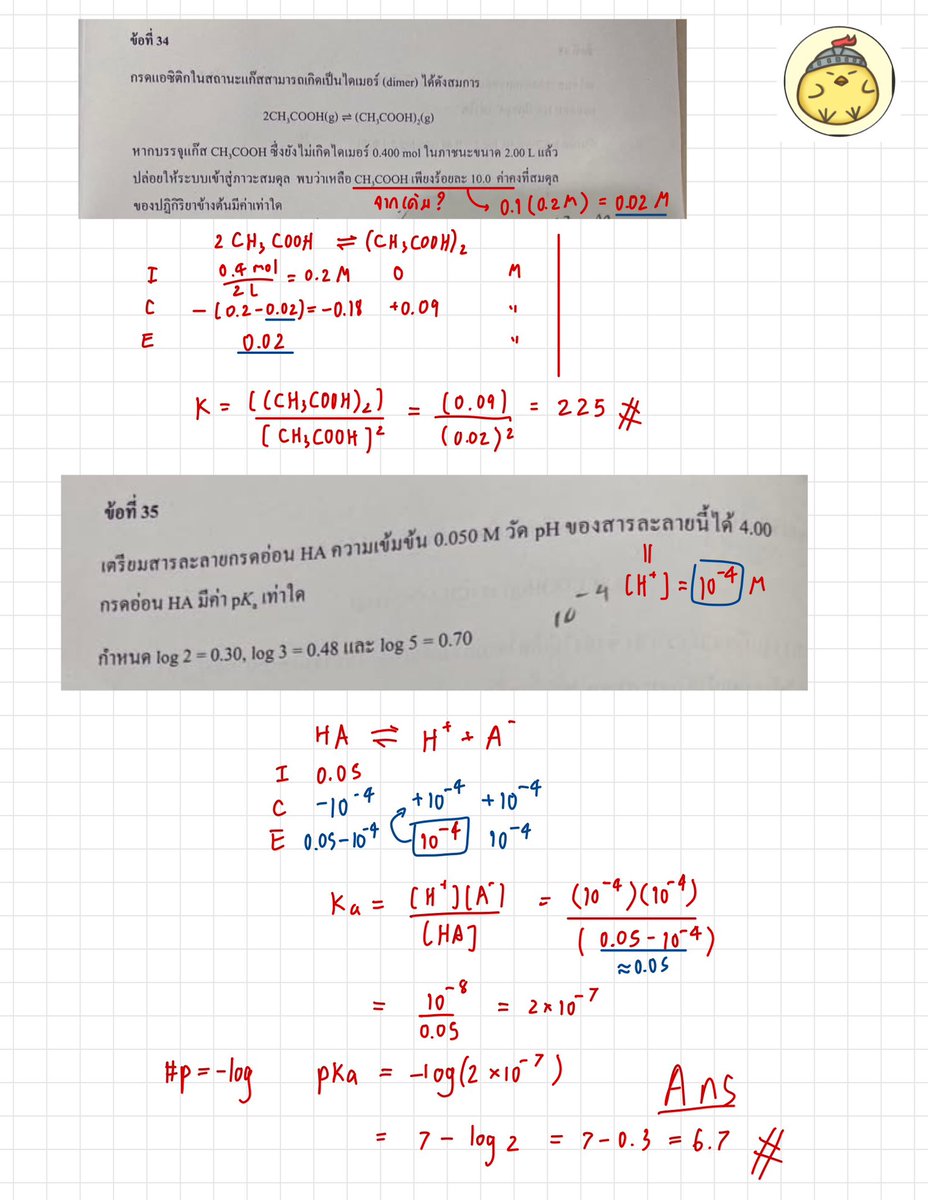 ข้อที่ 34
กรดแอซิติกในสถานะแก๊สสามารถเกิดเป็นไดเมอร์ (dimer) ได้ดังสมการ
2CH₃COOH(g) ⇌ (CH₃COOH)₂(g)
หากบรรจุแก๊ส CH₃COOH ซึ่งยังไม่เกิดไดเมอร์ 0.400 mol ในภาชนะขนาด 2.00 L แล้ว
ปล่อยให้ระบบเข้าสู่ภาวะสมดุล พบว่าเหลือ CH₃COOH เพียงร้อยละ 10.0 ค่าคงที่สมดุล
ของปฏิกิริยาข้างต้นมีค่าเท่าใด
จากเดิม? 0.1(0.2M) = 0.02 M
2 CH₃COOH ⇌ (CH₃COOH)₂
I 0.4 mol/2L = 0.2 M 0 M
C -(0.2-0.02)=-0.18 +0.09 "
E 0.02 "
K = [(CH₃COOH)₂]/[CH₃COOH]² = (0.09)/(0.02)² = 225 #
ข้อที่ 35
เตรียมสารละลายกรดอ่อน HA ความเข้มข้น 0.050 M วัด pH ของสารละลายนี้ได้ 4.00
กรดอ่อน HA มีค่า pKₐ เท่าใด
10⁻⁴
[H⁺] = 10⁻⁴ M
กำหนด log 2 = 0.30, log 3 = 0.48 และ log 5 = 0.70
HA ⇌ H⁺ + A⁻
I 0.05
C -10⁻⁴ +10⁻⁴ +10⁻⁴
E 0.05-10⁻⁴ 10⁻⁴ 10⁻⁴
Ka = [H⁺][A⁻]/[HA] = (10⁻⁴)(10⁻⁴)/(0.05-10⁻⁴)
≈0.05
= 10⁻⁸/0.05 = 2×10⁻⁷
#p=-log pKa = -log(2×10⁻⁷)
Ans
= 7 - log 2 = 7-0.3 = 6.7 #